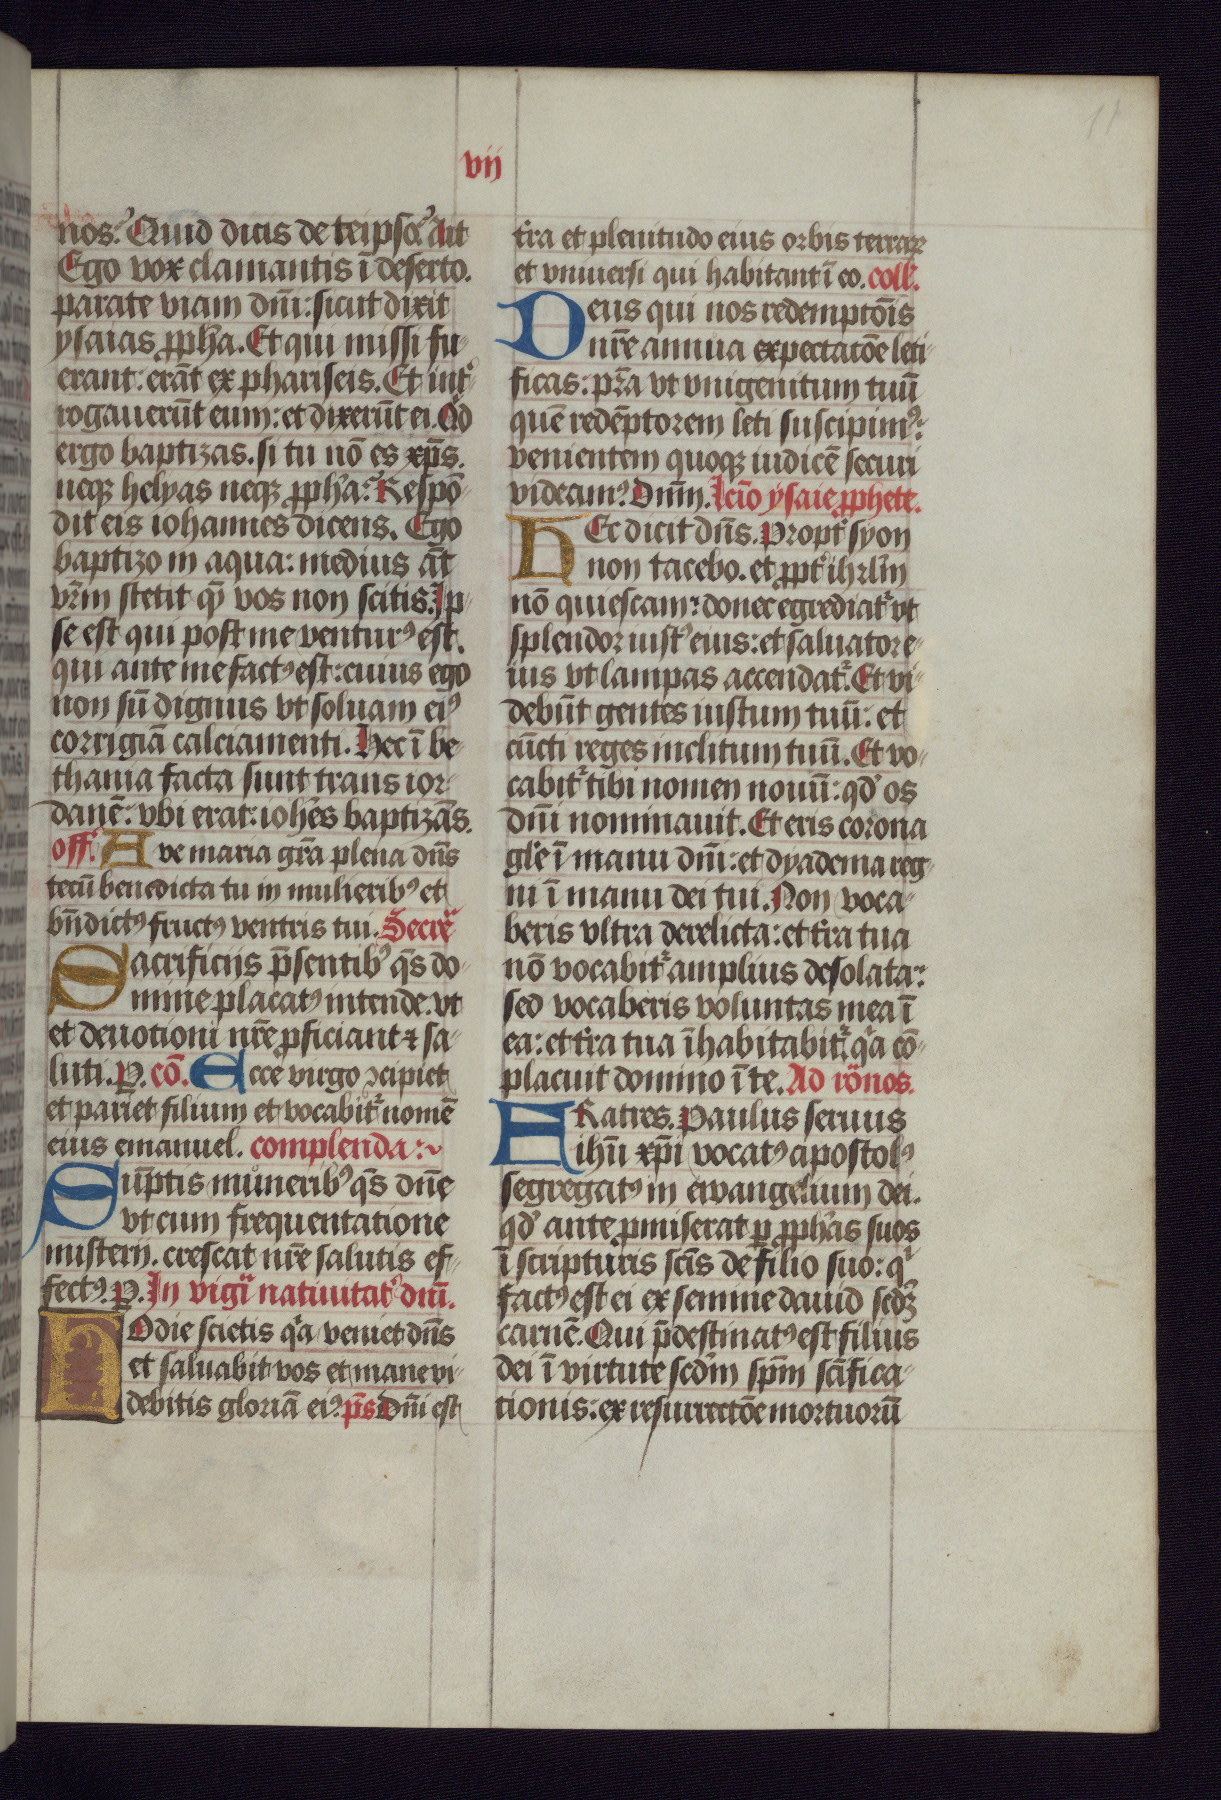 11
vij
nos.᾽ Quid dicis de teipso.᾽ Ait
Ego vox clamantis ī deserto.
parate viam dn̄i: sicut dixit
ysaias ꝓph̄a. Et qui missi fu-
erant: erāt ex phariseis. Et int᾽-
rogauerūt eum: et dixerūt ei. Qd̄
ergo baptizas. si tu nō es xp̄s.
neqꝫ helyas neqꝫ ꝓph̄a.᾽ Respō-
dit eis iohannes dicens. Ego
baptizo in aqua: medius āt
vr̄m stetit qē vos non scitis. Ip-
se est qui post me ventur᾽ est.
qui ante me fact᾽ est: cuius ego
non sū dignus vt soluam ei᾽
corrigiā calciamenti. Hec ī be-
thania facta sunt trans ior-
danē: vbi erat: ioh̄es baptizās.
off̄. Aue maria gr̄a plena dn̄s
tecū benedicta tu in mulierib᾽ et
bn̄dict᾽ fruct᾽ ventris tui. Secre᾽
Sacrificijs p̄sentib᾽ qs̄ do-
mine placat᾽ intende. vt
et deuotioni nr̄e ꝓficiant ⁊ sa-
luti. P. cō. Ecce virgo ↄcipiet
et pariet filium et vocabit᾽ nomē
eius emanuel. complenda:~
Sūptis munerib᾽ qs̄ dn̄e
vt cum frequentatione
misterij. crescat nr̄e salutis ef-
fect᾽. P. In vigi᾽ natiuitat᾽ dn̄i.
Hodie scietis q᾽a veniet dn̄s
et saluabit vos et mane vi-
debitis gloriā ei᾽. ps̄ Dn̄i est
tr̄a et plenitudo eius orbis terraꝝ
et vniuersi qui habitant ī eo. coll᾽.
Deus qui nos redemptōis
nr̄e annua expectatōe leti-
ficas: pr̄a vt vnigenitum tuū
quē redēptorem leti suscipim᾽:
venientem quoqꝫ iudicē securi
videam᾽. Dn̄m. lcīo ysaie ꝓphete.
HEc dicit dn̄s. Propt᾽ syon
non tacebo. et ꝓpt᾽ ihrl̄m
nō quiescam: donec egrediat᾽ vt
splendor iust᾽ eius: et saluator e-
ius vt lampas accendat᾽. Et vi-
debūt gentes iustum tuū: et
cūcti reges inclitum tuū. Et vo-
cabit᾽ tibi nomen nouū: qd᾽ os
dn̄i nominauit. Et eris corona
gl᾽e ī manu dn̄i: et dyadema reg-
ni ī manu dei tui. Non voca-
beris vltra derelicta: et tr̄a tua
nō vocabit᾽ amplius desolata:
sed vocaberis voluntas mea ī
ea: et tr̄a tua īhabitabit᾽. q᾽a cō-
placuit domino ī te. Ad rōnos.
FRatres. Paulus seruus
ihū xp̄i vocat᾽ apostol᾽
segregat᾽ in ewangelium dei.
qd᾽ ante ꝓmiserat ꝑ ꝓph̄as suos
ī scripturis scīs de filio suo: q᾽
fact᾽ est ei ex semine dauid scdꝫ
carnē. Qui p̄destinat᾽ est filius
dei ī virtute scdm̄ spm̄ scīfica-
tionis: ex resurrectōe mortuorū